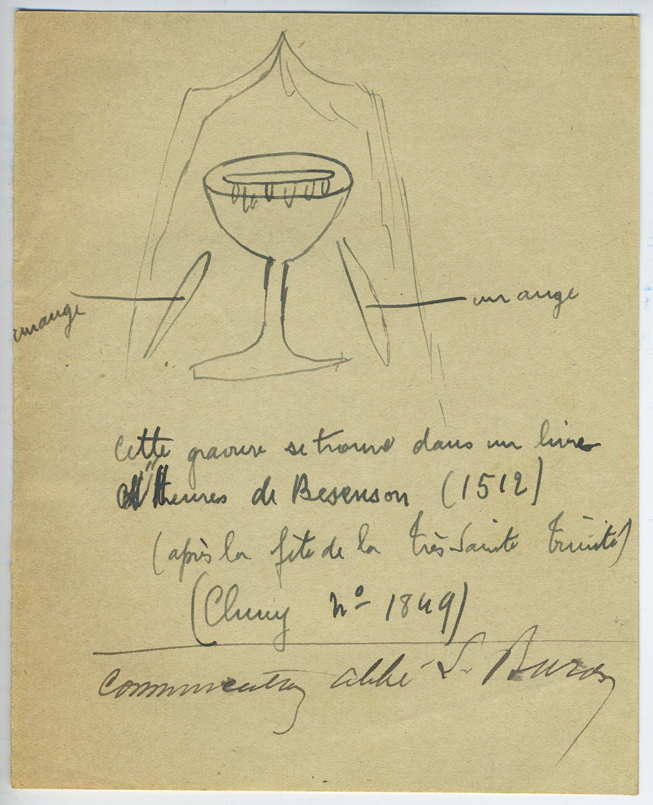 un ange
un ange
Cette gravure se trouve dans un livre
d'Heures de Besenson (1512)
(après la fête de la très Sainte Trinité)
(Cluny nº 1849)
abbé L. Buron